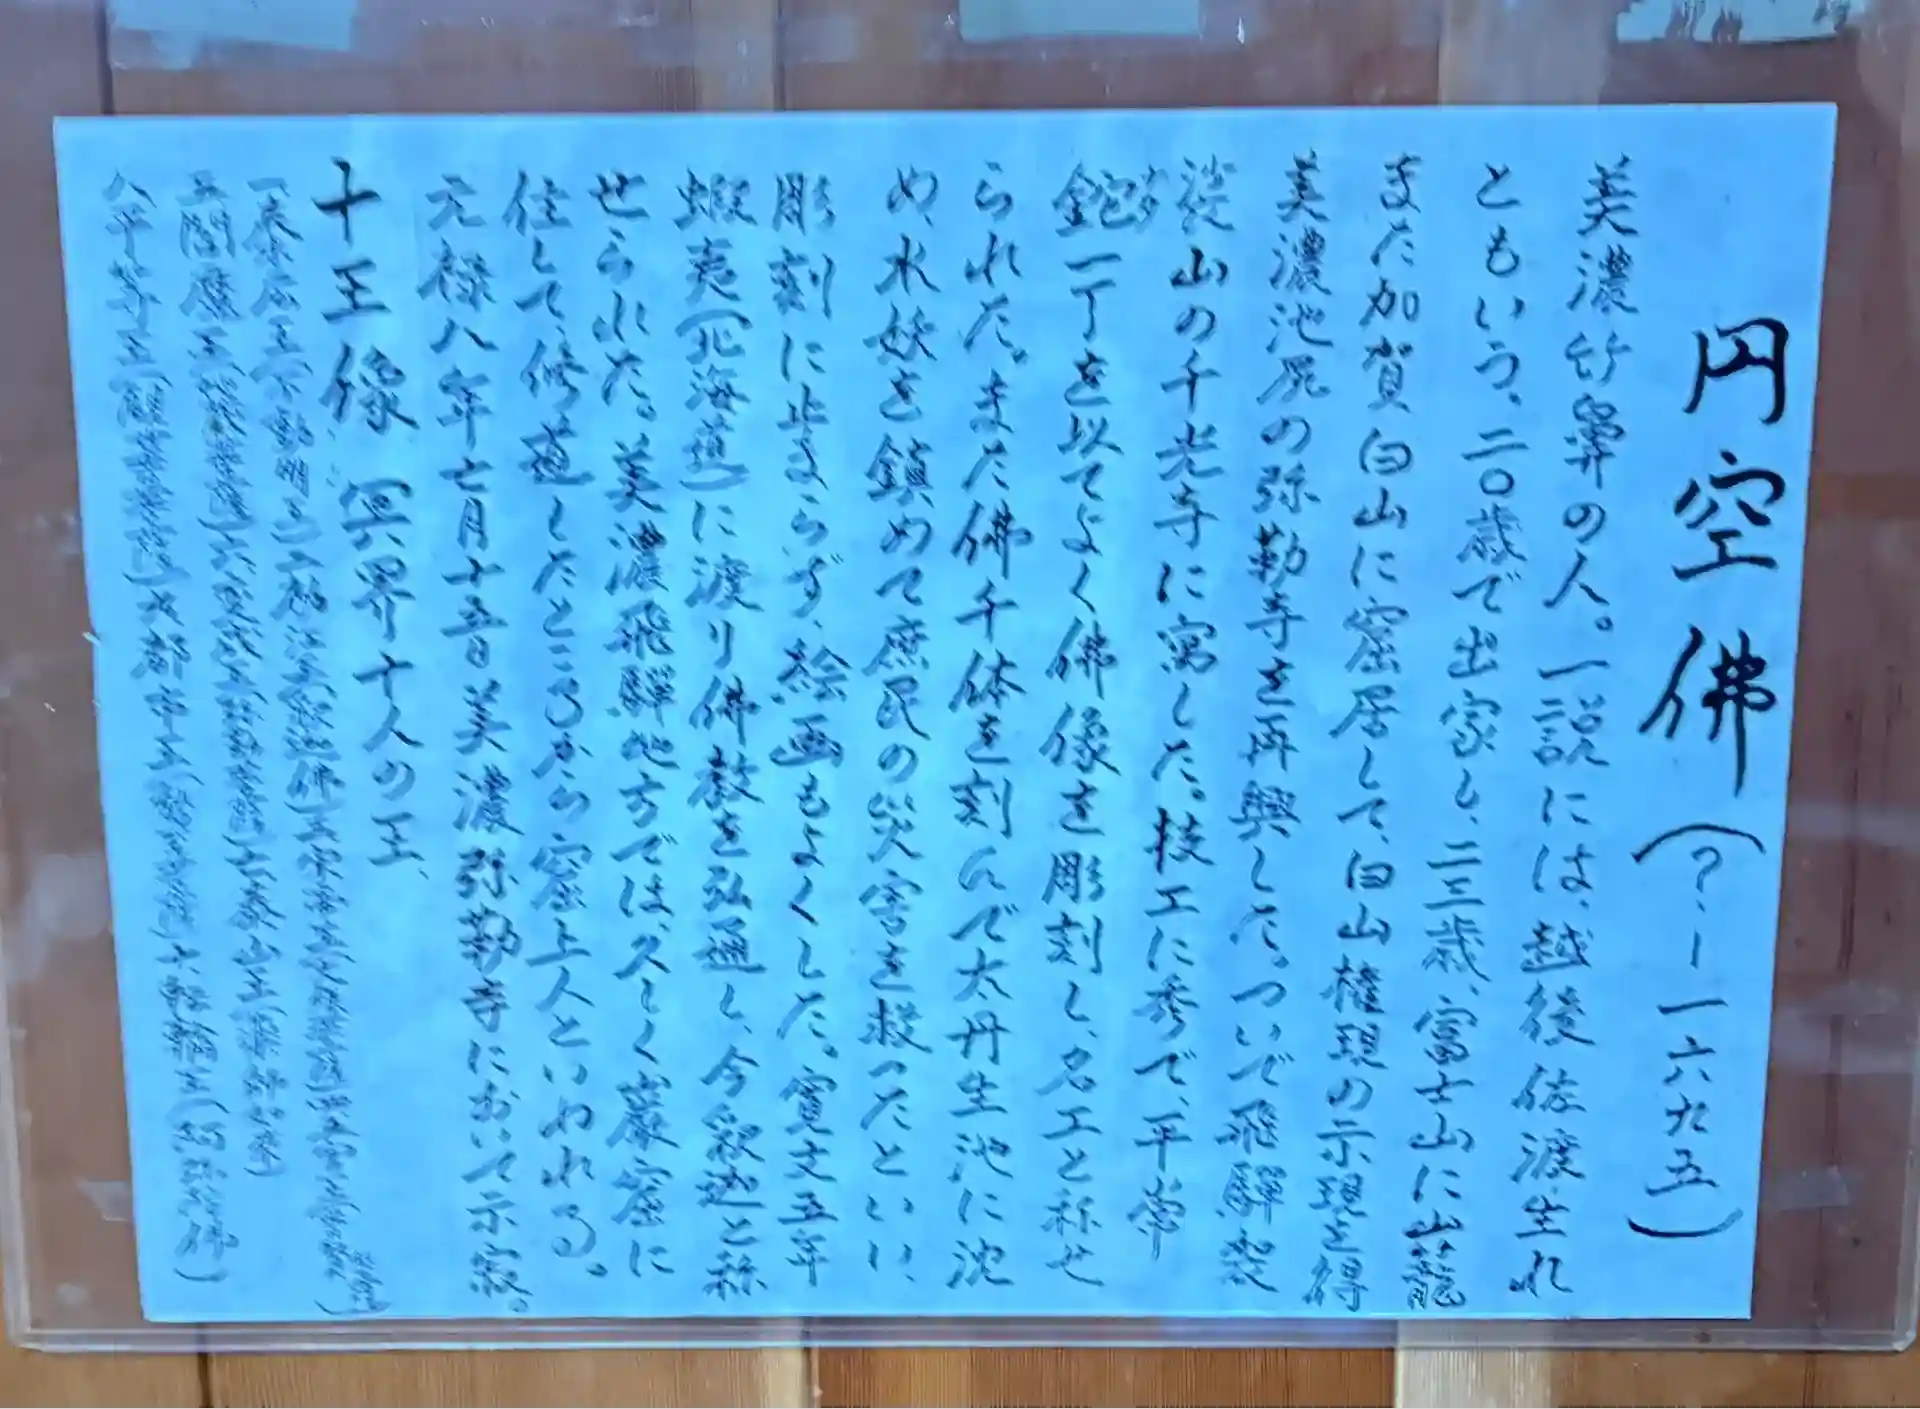 円空佛(?-一六九五)
美濃竹鼻の人。一説には、越後佐渡生れ
ともいう。二〇歳で出家し、二三歳、富士山に山籠
また加賀白山に窟居して、白山権現の示現を得
美濃池尻の弥勒寺を再興した。ついで飛騨袈
裟山の千光寺に寓した。技工に秀で、平常
鉈一丁を以てよく佛像を彫刻し、名工と称せ
られた。また佛千体を刻んで大丹生池に沈
め、水妖を鎮めて庶民の災害を救ったといい、
彫刻に止まらず、絵画もよくした。寛文五年
蝦夷(北海道)に渡り佛教を弘通し、今釈迦と称
せられた。美濃飛騨地方では、久しく巖窟に
住して、修道したところから窟上人といわれる。
元禄八年七月十五日美濃弥勒寺において示寂。
十王像 冥界十人の王、
一秦広王(不動明王)二初江王(釈迦佛)三宋帝王(文殊菩薩)四五官王(普賢菩薩)
五閻魔王(地蔵菩薩)六変成王(弥勒菩薩)七泰山王(薬師如来)
八平等王(観音菩薩)九都市王(勢至菩薩)十転輪王(阿弥陀佛)